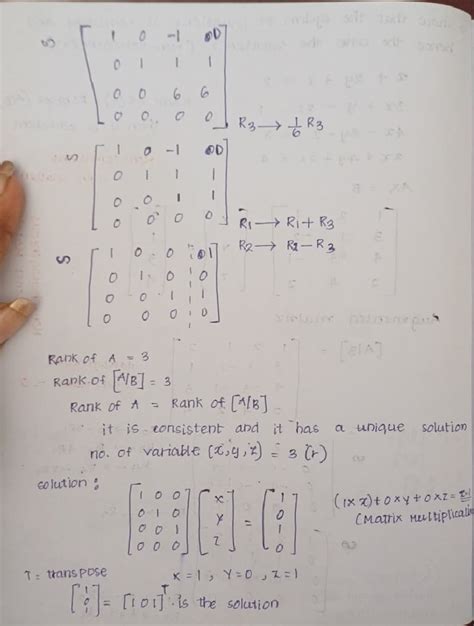 ∽ [ 1 0 -1 0
0 1 1 1
0 0 6 6
0 0 0 0 ] R3 → 1/6 R3
∽ [ 1 0 -1 0
0 1 1 1
0 0 1 1
0 0 0 0 ] R1 → R1 + R3
R2 → R2 - R3
∽ [ 1 0 0 1
0 1 0 0
0 0 1 1
0 0 0 0 ]
Rank of A = 3
Rank of [A/B] = 3
Rank of A = Rank of [A/B]
it is consistent and it has a unique solution
no. of variable (x,y,z) = 3 (r)
solution :
[ 1 0 0
0 1 0
0 0 1
0 0 0 ] [ x
y
z ] = [ 1
0
1
0 ]
(1xx)+0xy+0xz=
(Matrix Multiplication
T = transpose x = 1, y = 0, z = 1
[ 1
0
1 ] = [1 0 1]^T is the solution